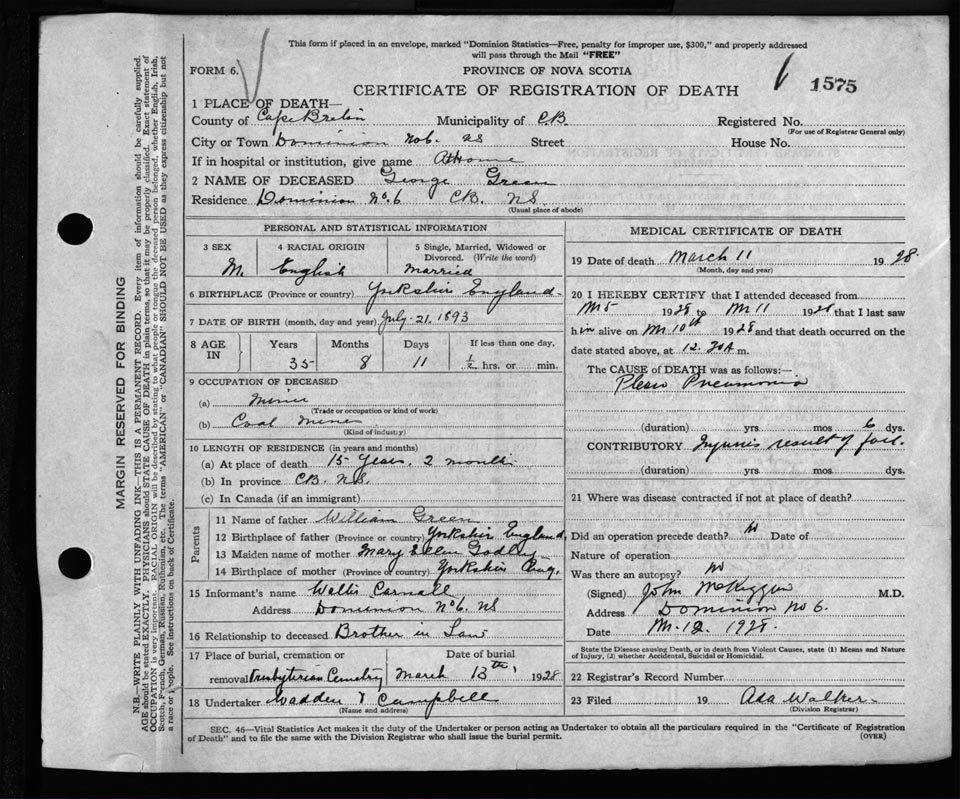 This form if placed in an envelope, marked "Dominion Statistics—Free, penalty for improper use, $300," and properly addressed
will pass through the Mail "FREE"
FORM 6.
PROVINCE OF NOVA SCOTIA
CERTIFICATE OF REGISTRATION OF DEATH
1575
1 PLACE OF DEATH—
County of Cape Breton Municipality of CB Registered No.
(For use of Registrar General only)
City or Town Dominion No 6. NS Street House No.
If in hospital or institution, give name At Home
2 NAME OF DECEASED George Green
Residence Dominion No. 6 CB. NS.
(Usual place of abode)
PERSONAL AND STATISTICAL INFORMATION
3 SEX
M.
4 RACIAL ORIGIN
English
5 Single, Married, Widowed or
Divorced. (Write the word)
Married
6 BIRTHPLACE (Province or country) Yorkshire England
7 DATE OF BIRTH (month, day and year) July 21. 1893
8 AGE
IN
Years
35
Months
8
Days
11
If less than one day,
hrs. or min.
9 OCCUPATION OF DECEASED
(a) Miner
(Trade or occupation or kind of work)
(b) Coal Mines
(Kind of industry)
10 LENGTH OF RESIDENCE (in years and months)
(a) At place of death 15 Years. 2 months
(b) In province CB. NS.
(c) In Canada (if an immigrant)
Parents
11 Name of father William Green
12 Birthplace of father (Province or country) Yorkshire England,
13 Maiden name of mother Mary Ellen Godley
14 Birthplace of mother (Province or country) Yorkshire Eng.
15 Informant's name Wallis Carnall
Address Dominion No 6. NS
16 Relationship to deceased Brother in Law
17 Place of burial, cremation or Date of burial
removal Presbyterian Cemetry March 13th, 1928
18 Undertaker Wadden & Campbell
(Name and address)
MEDICAL CERTIFICATE OF DEATH
19 Date of death March 11 1928.
(Month, day and year)
20 I HEREBY CERTIFY that I attended deceased from
Mr 5 1928 to Mr 11 1928 that I last saw
him alive on Mr 10th 1928 and that death occurred on the
date stated above, at 12.30 A m.
The CAUSE of DEATH was as follows:—
Pleuro Pneumonia
(duration) yrs mos 6 dys.
CONTRIBUTORY Injuries result of fall.
(duration) yrs. mos. dys.
21 Where was disease contracted if not at place of death?
Did an operation precede death? No Date of
Nature of operation
Was there an autopsy? No
(Signed) John McKiggan M.D.
Address Dominion No 6.
Date Mr. 12. 1928.
State the Disease causing Death, or in death from Violent Causes, state (1) Means and
Nature of Injury, (2) whether Accidental, Suicidal or Homicidal.
22 Registrar's Record Number
23 Filed 19 Ada Walker
(Division Registrar)
SEC. 46—Vital Statistics Act makes it the duty of the Undertaker or person acting as Undertaker to obtain all the particulars required in the "Certificate of Registration
of Death" and to file the same with the Division Registrar who shall issue the burial permit.
(OVER)
MARGIN RESERVED FOR BINDING
N.B.—WRITE PLAINLY WITH UNFADING INK—THIS IS A PERMANENT RECORD. Every item of information should be carefully supplied.
AGE should be stated EXACTLY. PHYSICIANS should STATE CAUSE OF DEATH in plain terms, so that it may be properly classified. Exact statement of
OCCUPATION is very important. RACIAL ORIGIN will be described by stating to what people or tongue the deceased person belonged, whether English, Irish,
Scotch, French, German, Russian, Ruthenian, etc. The terms "AMERICAN" or "CANADIAN" SHOULD NOT BE USED as they express citizenship but not
a race or people. See instructions on back of Certificate.